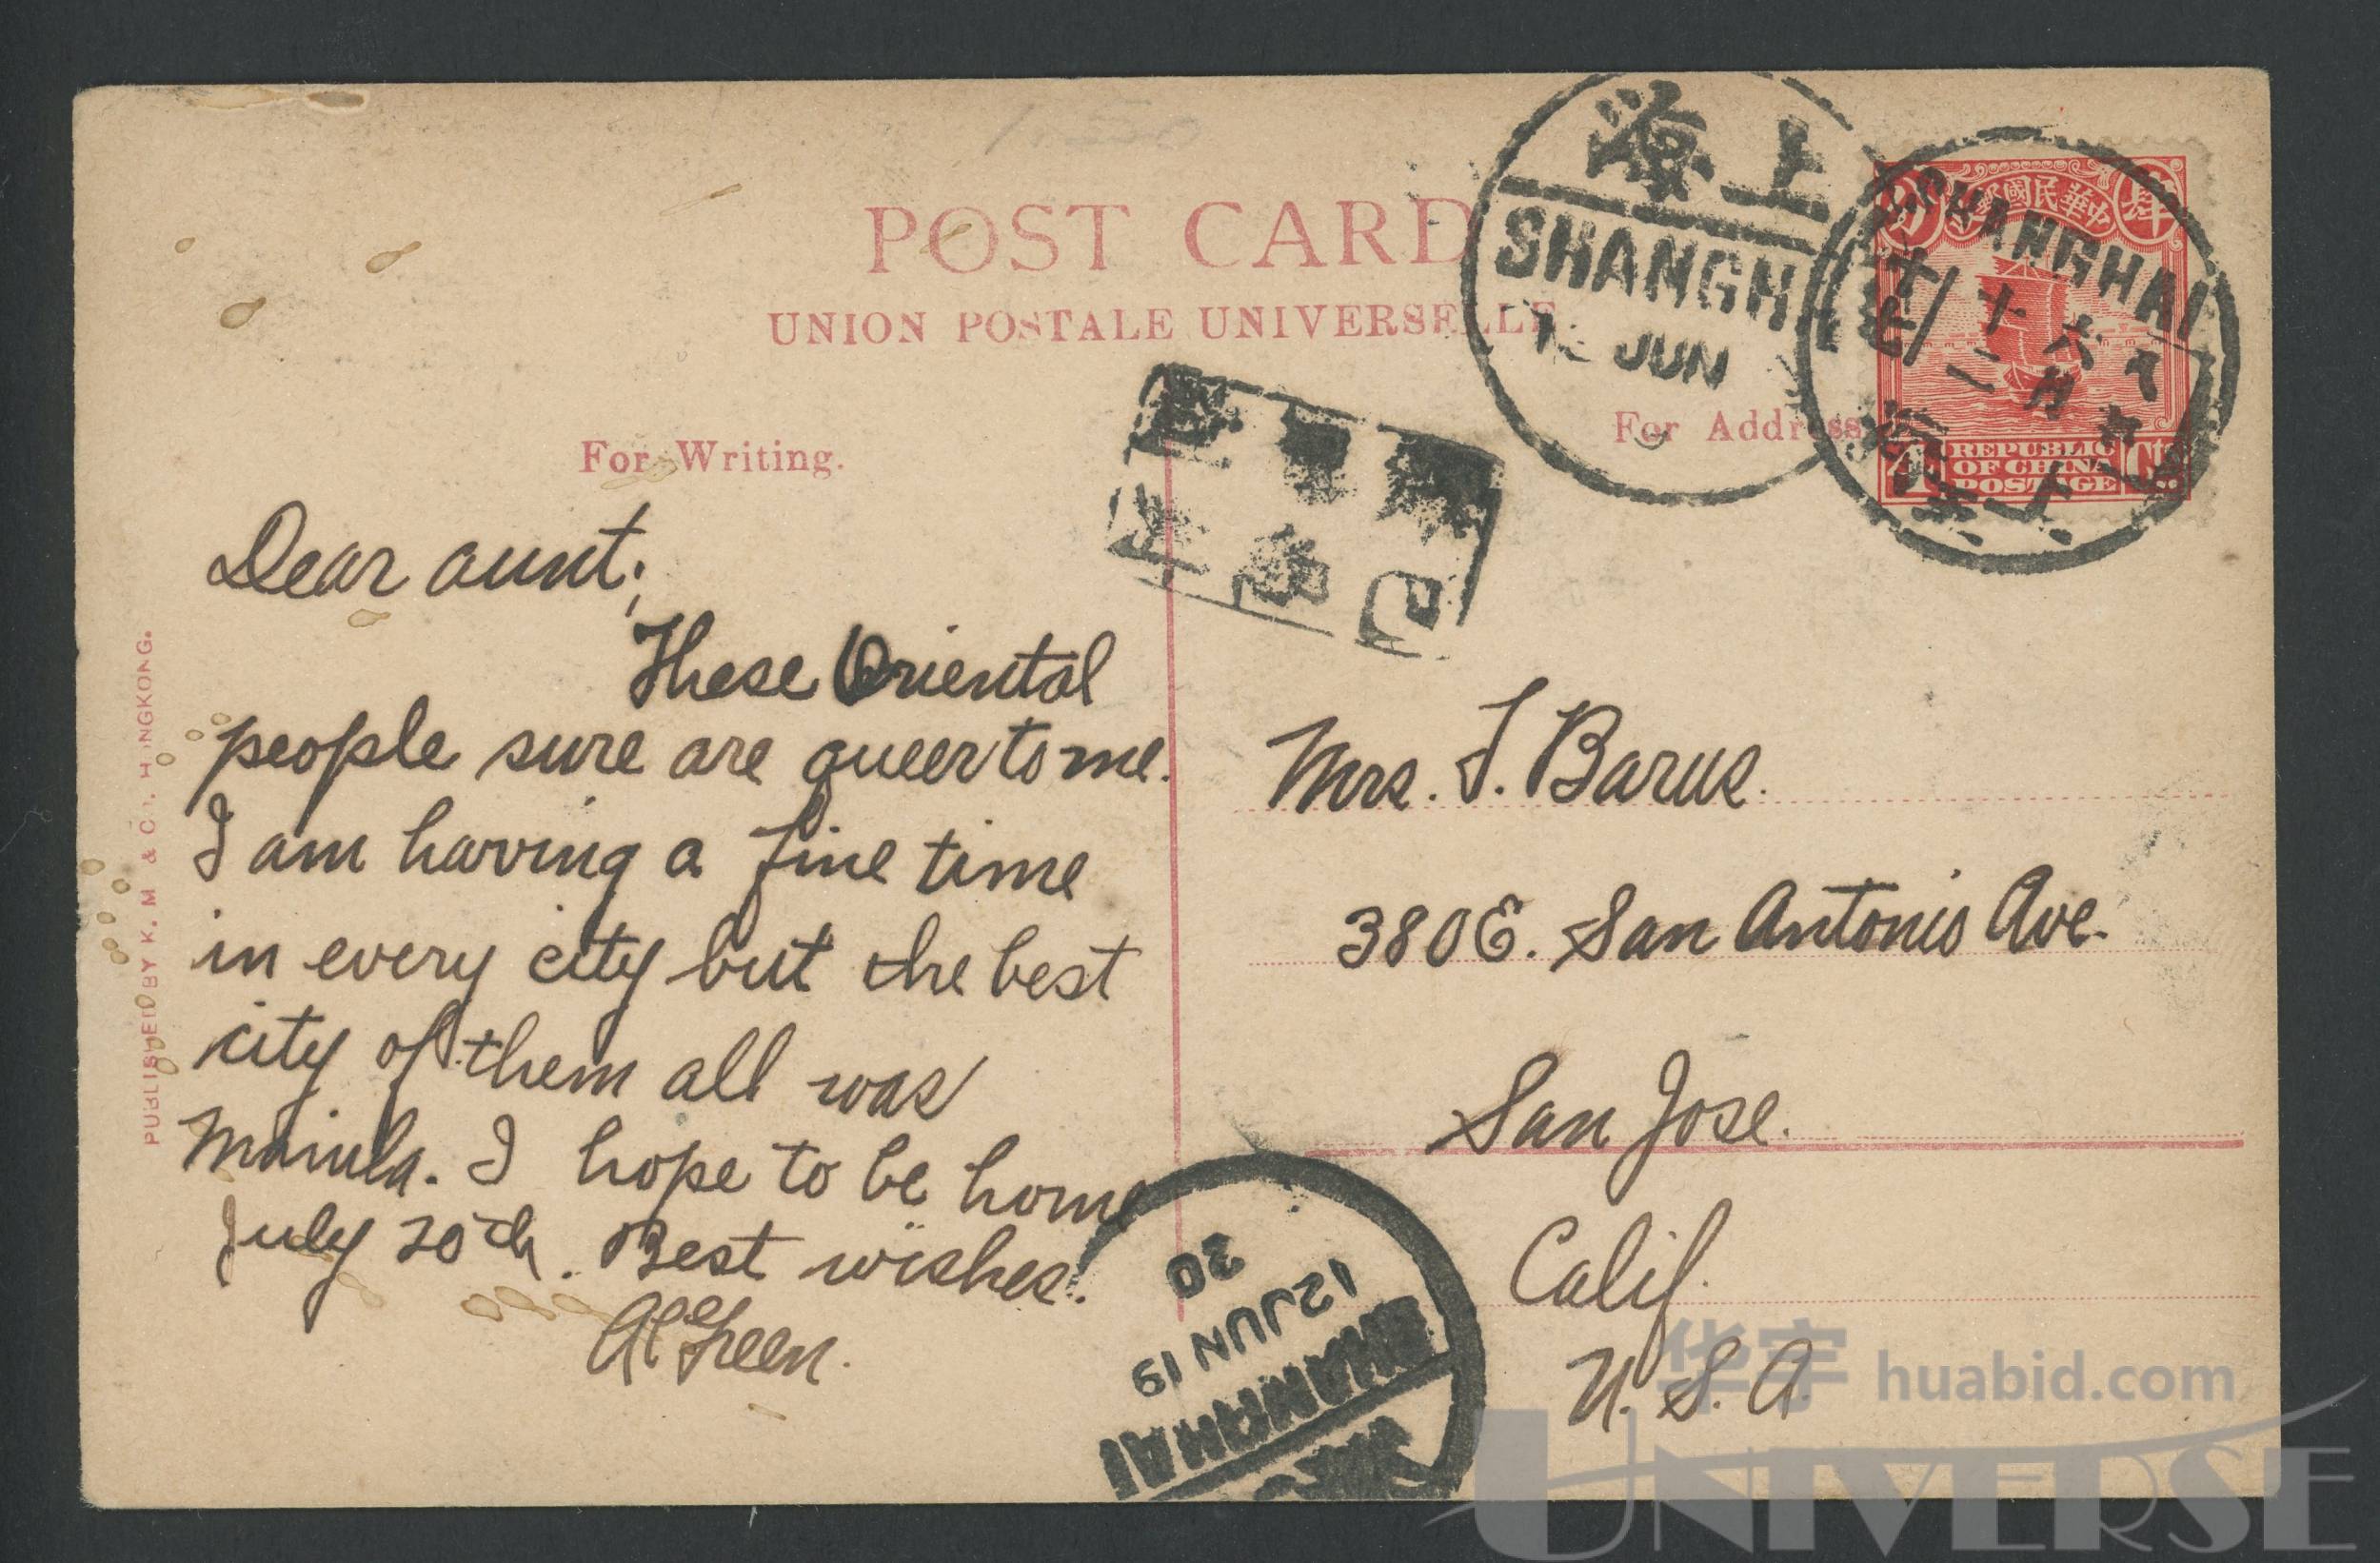 POST CARD
UNION POSTALE UNIVERSELLE
For Writing.
For Address
海上
SHANGH
JUN
SHANGHAI
十六
二月
上
中華民國郵政
肆
分
4
REPUBLIC
OF CHINA
POSTAGE
Cts.
Dear aunt;
These Oriental
people sure are queer to me.
I am having a fine time
in every city but the best
city of them all was
Manila. I hope to be home
July 20th. Best wishes.
Al Green.
Mrs. J. Barus.
380 E. San Antonio Ave.
San Jose.
Calif.
U. S. A.
PUBLISHED BY K. M & CO. HONGKONG.
SHANGHAI
12 JUN 19
20
华宇 huabid.com
UNIVERSE